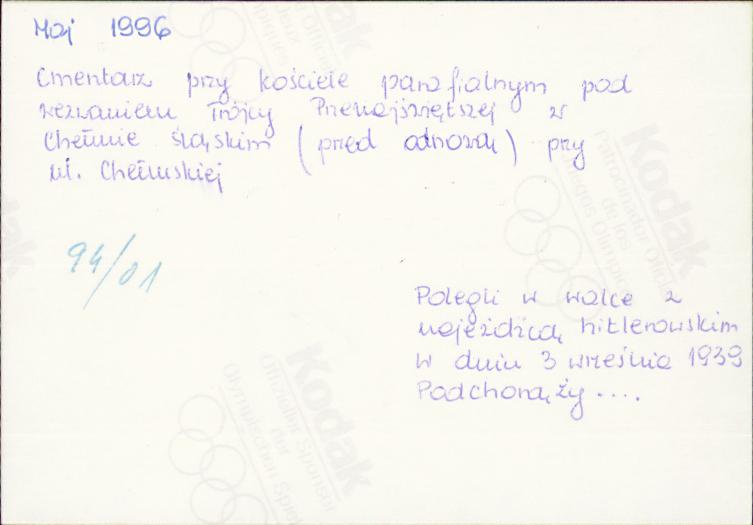 Maj 1996
Cmentarz przy kościele parafialnym pod
wezwaniem Trójcy Przenajświętszej w
Chełmie Śląskim (przed odnową) przy
ul. Chełmskiej
94/01
Polegli w walce z
najeźdźcą hitlerowskim
w dniu 3 września 1939
Podchorąży....
Kodak
Patrocinador Oficial
de los
Juegos Olímpicos
Kodak
Offizieller Sponsor
der
Olympischen Spiele
Kodak